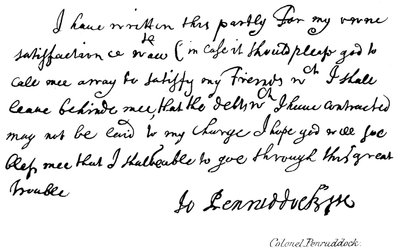 I have written this partly for my owne
satisfaction & (in case it should please god to
call mee away to satisfy my Friends wch I shall
leave behinde mee, that the debts wch I have contracted
may not be laid to my charge I hope god will soe
bless mee that I shall be able to goe through this great
trouble
Jo Penruddock
Colonel Penruddock.